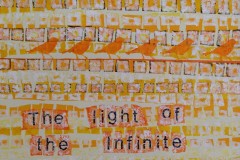 The light of
the Infinite